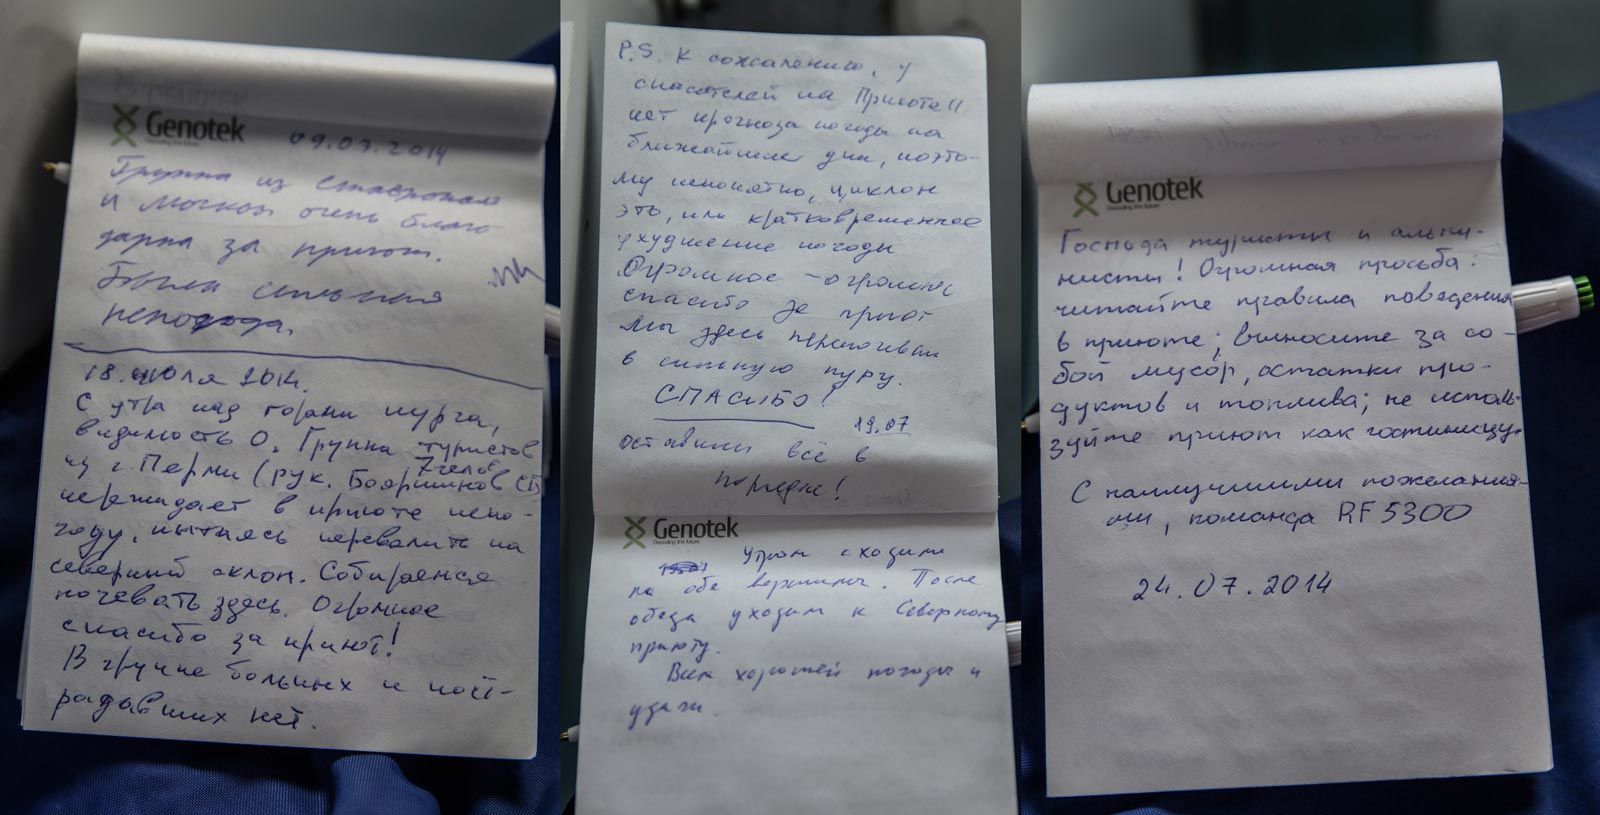 Genotek
Decoding the future
09.07.2014
Группа из Ставрополя
и Москвы очень благо
дарна за приют.
Была сильная
непогода.
18. июля 2014.
С утра над горами пурга,
видимость 0. Группа туристов
7 челов
из г. Перми (рук. Бояршинов
пережидает в приюте непо-
году, пытаясь перевалить на
северный склон. Собираемся
ночевать здесь. Огромное
спасибо за приют!
В группе больных и пост-
радавших нет.
P.S. К сожалению, у
спасателей на Приюте 11
нет прогноза погоды на
ближайшие дни, поэто-
му непонятно, циклон
это, или кратковременное
ухудшение погоды
Огромное - огромное
спасибо за приют
Мы здесь переночевали
в сильную пургу.
СПАСИБО!
19.07
оставили всё в
порядке!
Genotek
Decoding the future
Утром сходили
на обе вершины. После
обеда уходим к Северному
приюту.
Всем хорошей погоды и
удачи.
Genotek
Decoding the future
Господа туристы и альпи-
нисты! Огромная просьба:
читайте правила поведения
в приюте; выносите за со-
бой мусор, остатки про-
дуктов и топлива; не исполь-
зуйте приют как гостиницу.
С наилучшими пожелания-
ми, команда RF 5300
24.07.2014